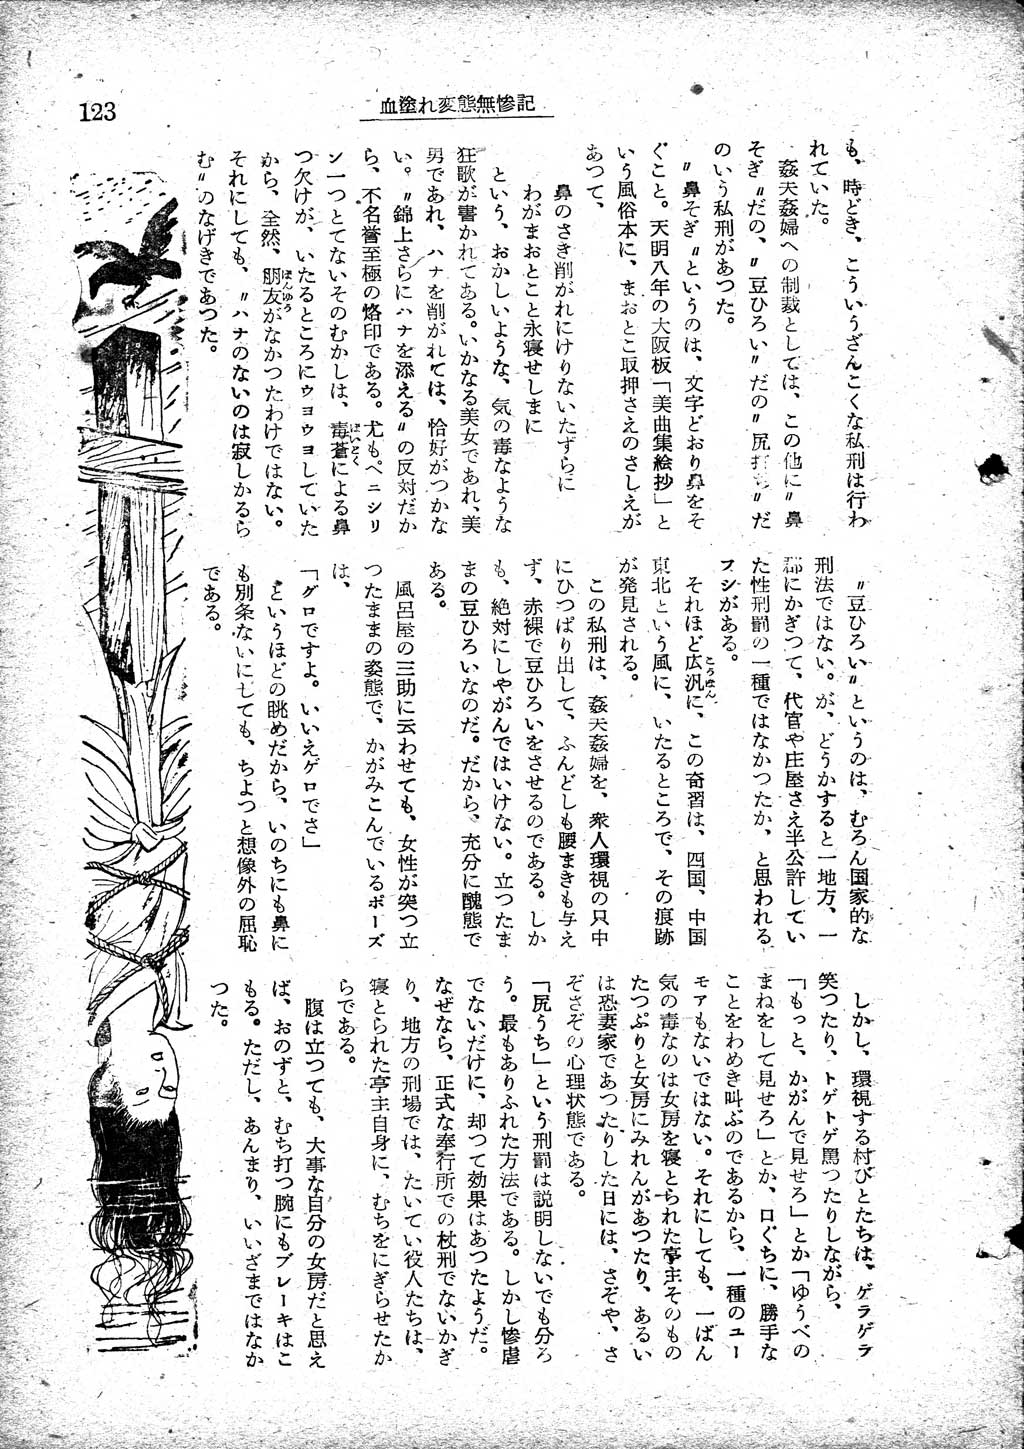 血塗れ変態無惨記
123
も、時どき、こういうざんこくな私刑は行わ
れていた。
姦夫姦婦への制裁としては、この他に〃鼻
そぎ〃だの、〃豆ひろい〃だの〃尻打ち〃だ
のいう私刑があつた。
〃鼻そぎ〃というのは、文字どおり鼻をそ
ぐこと。天明八年の大阪板「美曲集絵抄」と
いう風俗本に、まおとこ取押さえのさしえが
あつて、
鼻のさき削がれにけりないたずらに
わがまおとこと永寝せしまに
という、おかしいような、気の毒なような
狂歌が書かれてある。いかなる美女であれ、美
男であれ、ハナを削がれては、恰好がつかな
い。〃錦上さらにハナを添える〃の反対だか
ら、不名誉至極の烙印である。尤もペニシリ
ン一つとてないそのむかしは、毒蒼による鼻
つ欠けが、いたるところにウヨウヨしていた
から、全然、朋友がなかつたわけではない。
それにしても、〃ハナのないのは寂しかるら
む〃のなげきであつた。
〃豆ひろい〃というのは、むろん国家的な
刑法ではない。が、どうかすると一地方、一
郡にかぎつて、代官や庄屋さえ半公許してい
た性刑罰の一種ではなかつたか、と思われる
フシがある。
それほど広汎に、この奇習は、四国、中国
東北という風に、いたるところで、その痕跡
が発見される。
この私刑は、姦夫姦婦を、衆人環視の只中
にひつぱり出して、ふんどしも腰まきも与え
ず、赤裸で豆ひろいをさせるのである。しか
も、絶対にしやがんではいけない。立つたま
まの豆ひろいなのだ。だから、充分に醜態で
ある。
風呂屋の三助に云わせても、女性が突つ立
つたままの姿態で、かがみこんでいるポーズ
は、
「グロですよ。いいえゲロでさ」
というほどの眺めだから、いのちにも鼻に
も別条ないにしても、ちよつと想像外の屈恥
である。
しかし、環視する村びとたちは、ゲラゲラ
笑つたり、トゲトゲ罵つたりしながら、
「もっと、かがんで見せろ」とか「ゆうべの
まねをして見せろ」とか、口ぐちに、勝手な
ことをわめき叫ぶのであるから、一種のユー
モアもないではない。それにしても、一ばん
気の毒なのは女房を寝とられた亭主そのもの
たつぷりと女房にみれんがあつたり、あるい
は恐妻家であつたりした日には、さぞや、さ
ぞさぞの心理状態である。
「尻うち」という刑罰は説明しないでも分ろ
う。最もありふれた方法である。しかし惨虐
でないだけに、却つて効果はあつたようだ。
なぜなら、正式な奉行所での杖刑でないかぎ
り、地方の刑場では、たいてい役人たちは、
寝とられた亭主自身に、むちをにぎらせたか
らである。
腹は立つても、大事な自分の女房だと思え
ば、おのずと、むち打つ腕にもブレーキはこ
もる。ただし、あんまり、いいざまではなか
つた。